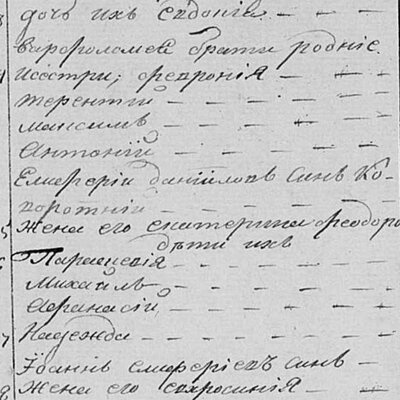 дочь ихъ Евдокія
варфоломея брати родніе
исестри; февронія
терентій
максимъ
Антоній
Елиферій даніиловъ синъ Ко-
коротній
Жена его екатерина феодоро
дѣти ихъ
Параскевія
Михаилъ
Афанасій
Надежда
Іванъ елиферіевъ синъ
Жена его евфросинія